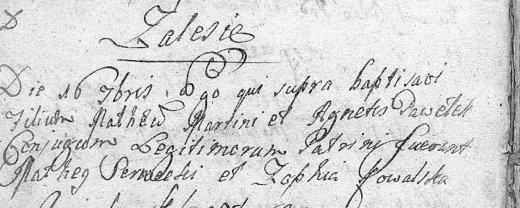 Zalesie
Die 16 7bris Ego qui supra baptisavi
Filium Martini et Agnetis Pawełek
Coniugum Legitimorum Patrini fuerunt
Mathey et Zophia Kowalska